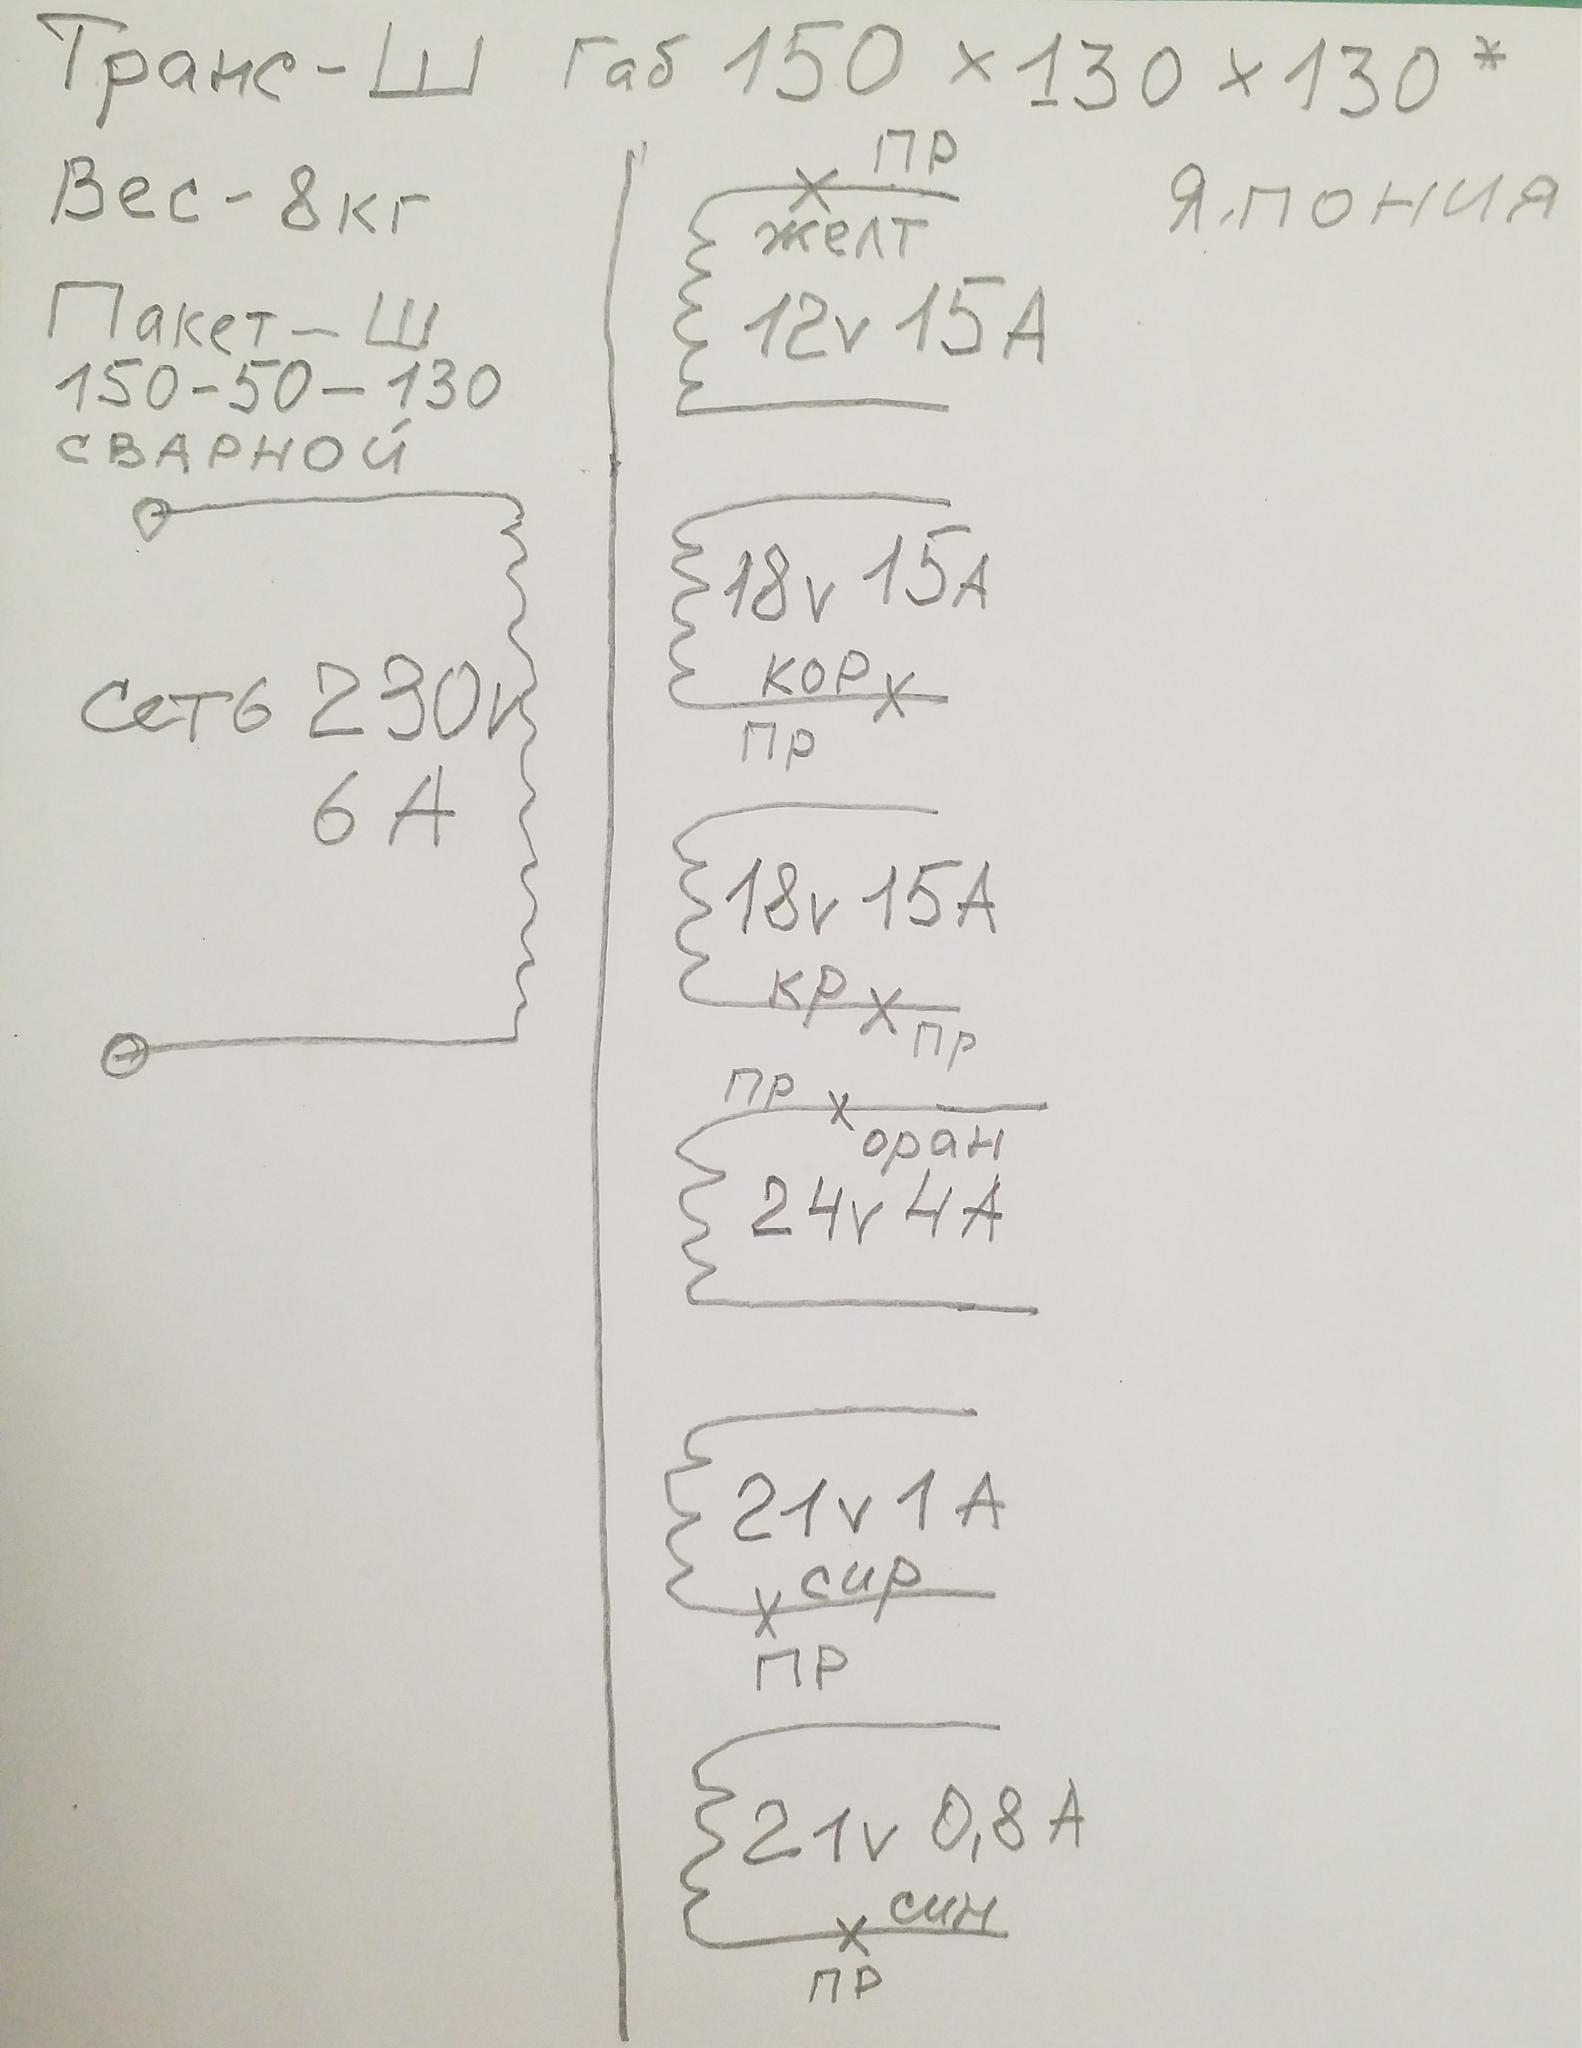 Транс-Ш Габ 150 × 130 × 130*
Вес - 8 кг
Япония
Пакет - Ш
150-50-130
СВАРНОЙ
Сеть 230v
6 А
ПР
желт
12v 15А
18v 15А
кор
ПР
18v 15А
кр
ПР
ПР
оран
24v 4А
21v 1А
сир
ПР
21v 0,8А
син
ПР